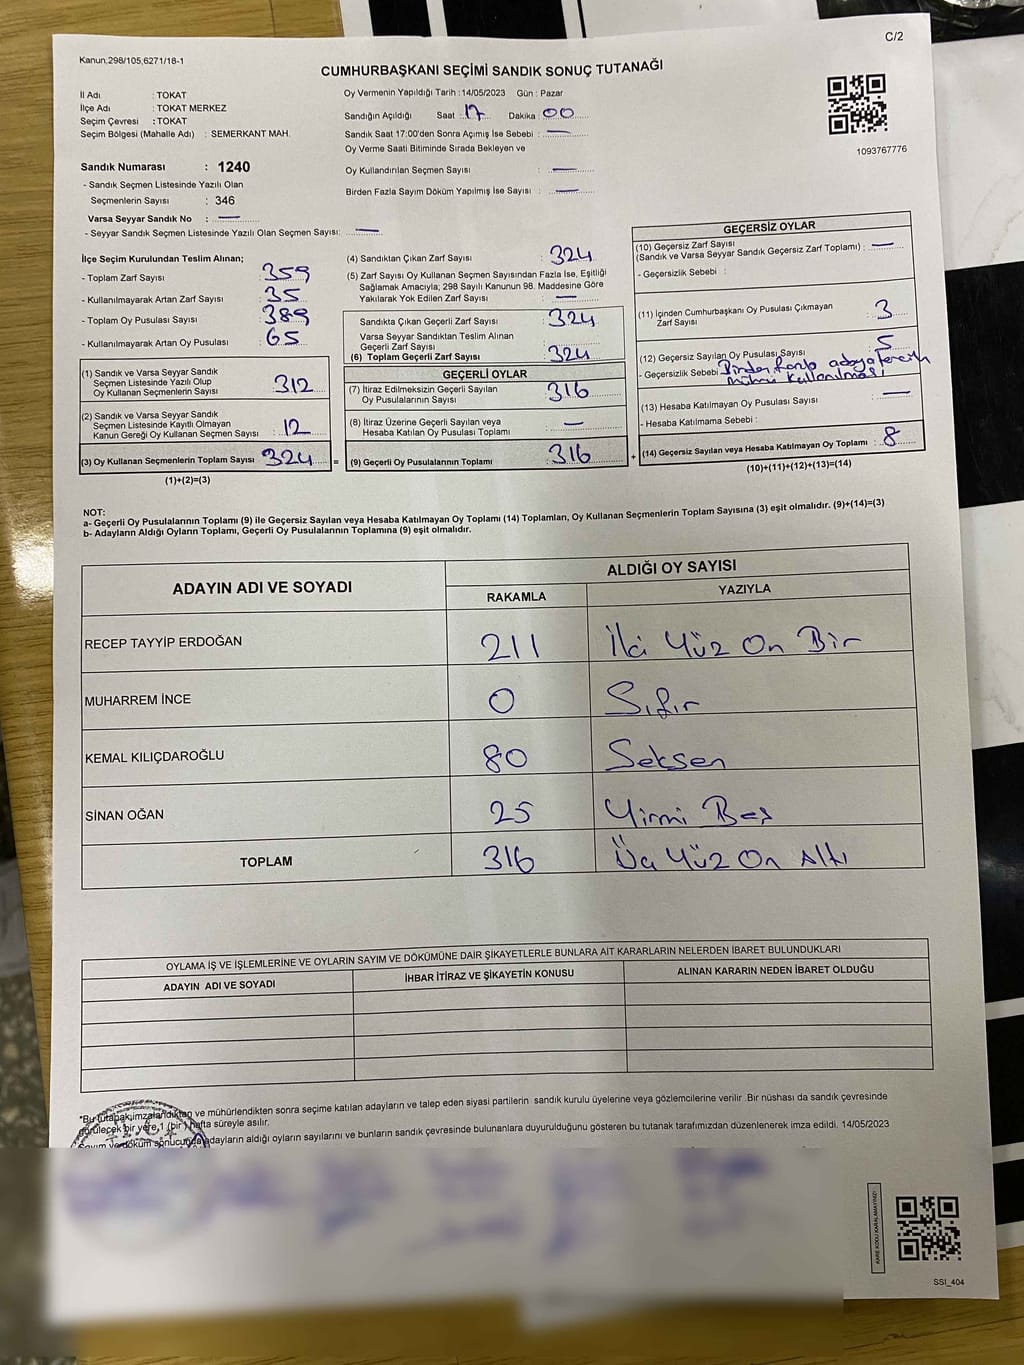 C/2
Kanun,298/105,6271/18-1
CUMHURBAŞKANI SEÇİMİ SANDIK SONUÇ TUTANAĞI
İl Adı : TOKAT
İlçe Adı : TOKAT MERKEZ
Seçim Çevresi : TOKAT
Seçim Bölgesi (Mahalle Adı) : SEMERKANT MAH.
Oy Vermenin Yapıldığı Tarih : 14/05/2023 Gün : Pazar
Sandığın Açıldığı Saat : 17 Dakika : 00
Sandık Saat 17:00'den Sonra Açımış İse Sebebi : —
Oy Verme Saati Bitiminde Sırada Bekleyen ve
Oy Kullandırılan Seçmen Sayısı : —
Birden Fazla Sayım Döküm Yapılmış İse Sayısı : —
1093767776
Sandık Numarası : 1240
- Sandık Seçmen Listesinde Yazılı Olan
Seçmenlerin Sayısı : 346
Varsa Seyyar Sandık No : —
- Seyyar Sandık Seçmen Listesinde Yazılı Olan Seçmen Sayısı: —
İlçe Seçim Kurulundan Teslim Alınan;
- Toplam Zarf Sayısı : 359
- Kullanılmayarak Artan Zarf Sayısı : 35
- Toplam Oy Pusulası Sayısı : 389
- Kullanılmayarak Artan Oy Pusulası : 65
(1) Sandık ve Varsa Seyyar Sandık
Seçmen Listesinde Yazılı Olup
Oy Kullanan Seçmenlerin Sayısı : 312
(2) Sandık ve Varsa Seyyar Sandık
Seçmen Listesinde Kayıtlı Olmayan
Kanun Gereği Oy Kullanan Seçmen Sayısı : 12
(3) Oy Kullanan Seçmenlerin Toplam Sayısı : 324
(1)+(2)=(3)
=
(4) Sandıktan Çıkan Zarf Sayısı : 324
(5) Zarf Sayısı Oy Kullanan Seçmen Sayısından Fazla İse, Eşitliği
Sağlamak Amacıyla; 298 Sayılı Kanunun 98. Maddesine Göre
Yakılarak Yok Edilen Zarf Sayısı : —
Sandıkta Çıkan Geçerli Zarf Sayısı : 324
Varsa Seyyar Sandıktan Teslim Alınan
Geçerli Zarf Sayısı :
(6) Toplam Geçerli Zarf Sayısı : 324
GEÇERLİ OYLAR
(7) İtiraz Edilmeksizin Geçerli Sayılan
Oy Pusulalarının Sayısı : 316
(8) İtiraz Üzerine Geçerli Sayılan veya
Hesaba Katılan Oy Pusulası Toplamı : —
(9) Geçerli Oy Pusulalarının Toplamı : 316
+
GEÇERSİZ OYLAR
(10) Geçersiz Zarf Sayısı
(Sandık ve Varsa Seyyar Sandık Geçersiz Zarf Toplamı) : —
- Geçersizlik Sebebi :
(11) İçinden Cumhurbaşkanı Oy Pusulası Çıkmayan
Zarf Sayısı : 3
(12) Geçersiz Sayılan Oy Pusulası Sayısı : 5
- Geçersizlik Sebebi : Birden fazla adaya tercih
mührü kullanılması
(13) Hesaba Katılmayan Oy Pusulası Sayısı : —
- Hesaba Katılmama Sebebi :
(14) Geçersiz Sayılan veya Hesaba Katılmayan Oy Toplamı : 8
(10)+(11)+(12)+(13)=(14)
NOT:
a- Geçerli Oy Pusulalarının Toplamı (9) ile Geçersiz Sayılan veya Hesaba Katılmayan Oy Toplamı (14) Toplamları, Oy Kullanan Seçmenlerin Toplam Sayısına (3) eşit olmalıdır. (9)+(14)=(3)
b- Adayların Aldığı Oyların Toplamı, Geçerli Oy Pusulalarının Toplamına (9) eşit olmalıdır.
ADAYIN ADI VE SOYADI
ALDIĞI OY SAYISI
RAKAMLA YAZIYLA
RECEP TAYYİP ERDOĞAN 211 İki Yüz On Bir
MUHARREM İNCE 0 Sıfır
KEMAL KILIÇDAROĞLU 80 Seksen
SİNAN OĞAN 25 Yirmi Beş
TOPLAM 316 Üç Yüz On Altı
OYLAMA İŞ VE İŞLEMLERİNE VE OYLARIN SAYIM VE DÖKÜMÜNE DAİR ŞİKAYETLERLE BUNLARA AİT KARARLARIN NELERDEN İBARET BULUNDUKLARI
ADAYIN ADI VE SOYADI İHBAR İTİRAZ VE ŞİKAYETİN KONUSU ALINAN KARARIN NEDEN İBARET OLDUĞU
*Bu tutanak imzalandıktan ve mühürlendikten sonra seçime katılan adayların ve talep eden siyasi partilerin sandık kurulu üyelerine veya gözlemcilerine verilir .Bir nüshası da sandık çevresinde
görülecek bir yere 1 (bir) hafta süreyle asılır.
Sayım ve döküm sonucunda adayların aldığı oyların sayılarını ve bunların sandık çevresinde bulunanlara duyurulduğunu gösteren bu tutanak tarafımızdan düzenlenerek imza edildi. 14/05/2023
KARE KODU KARALAMAYINIZ!
SSI_404